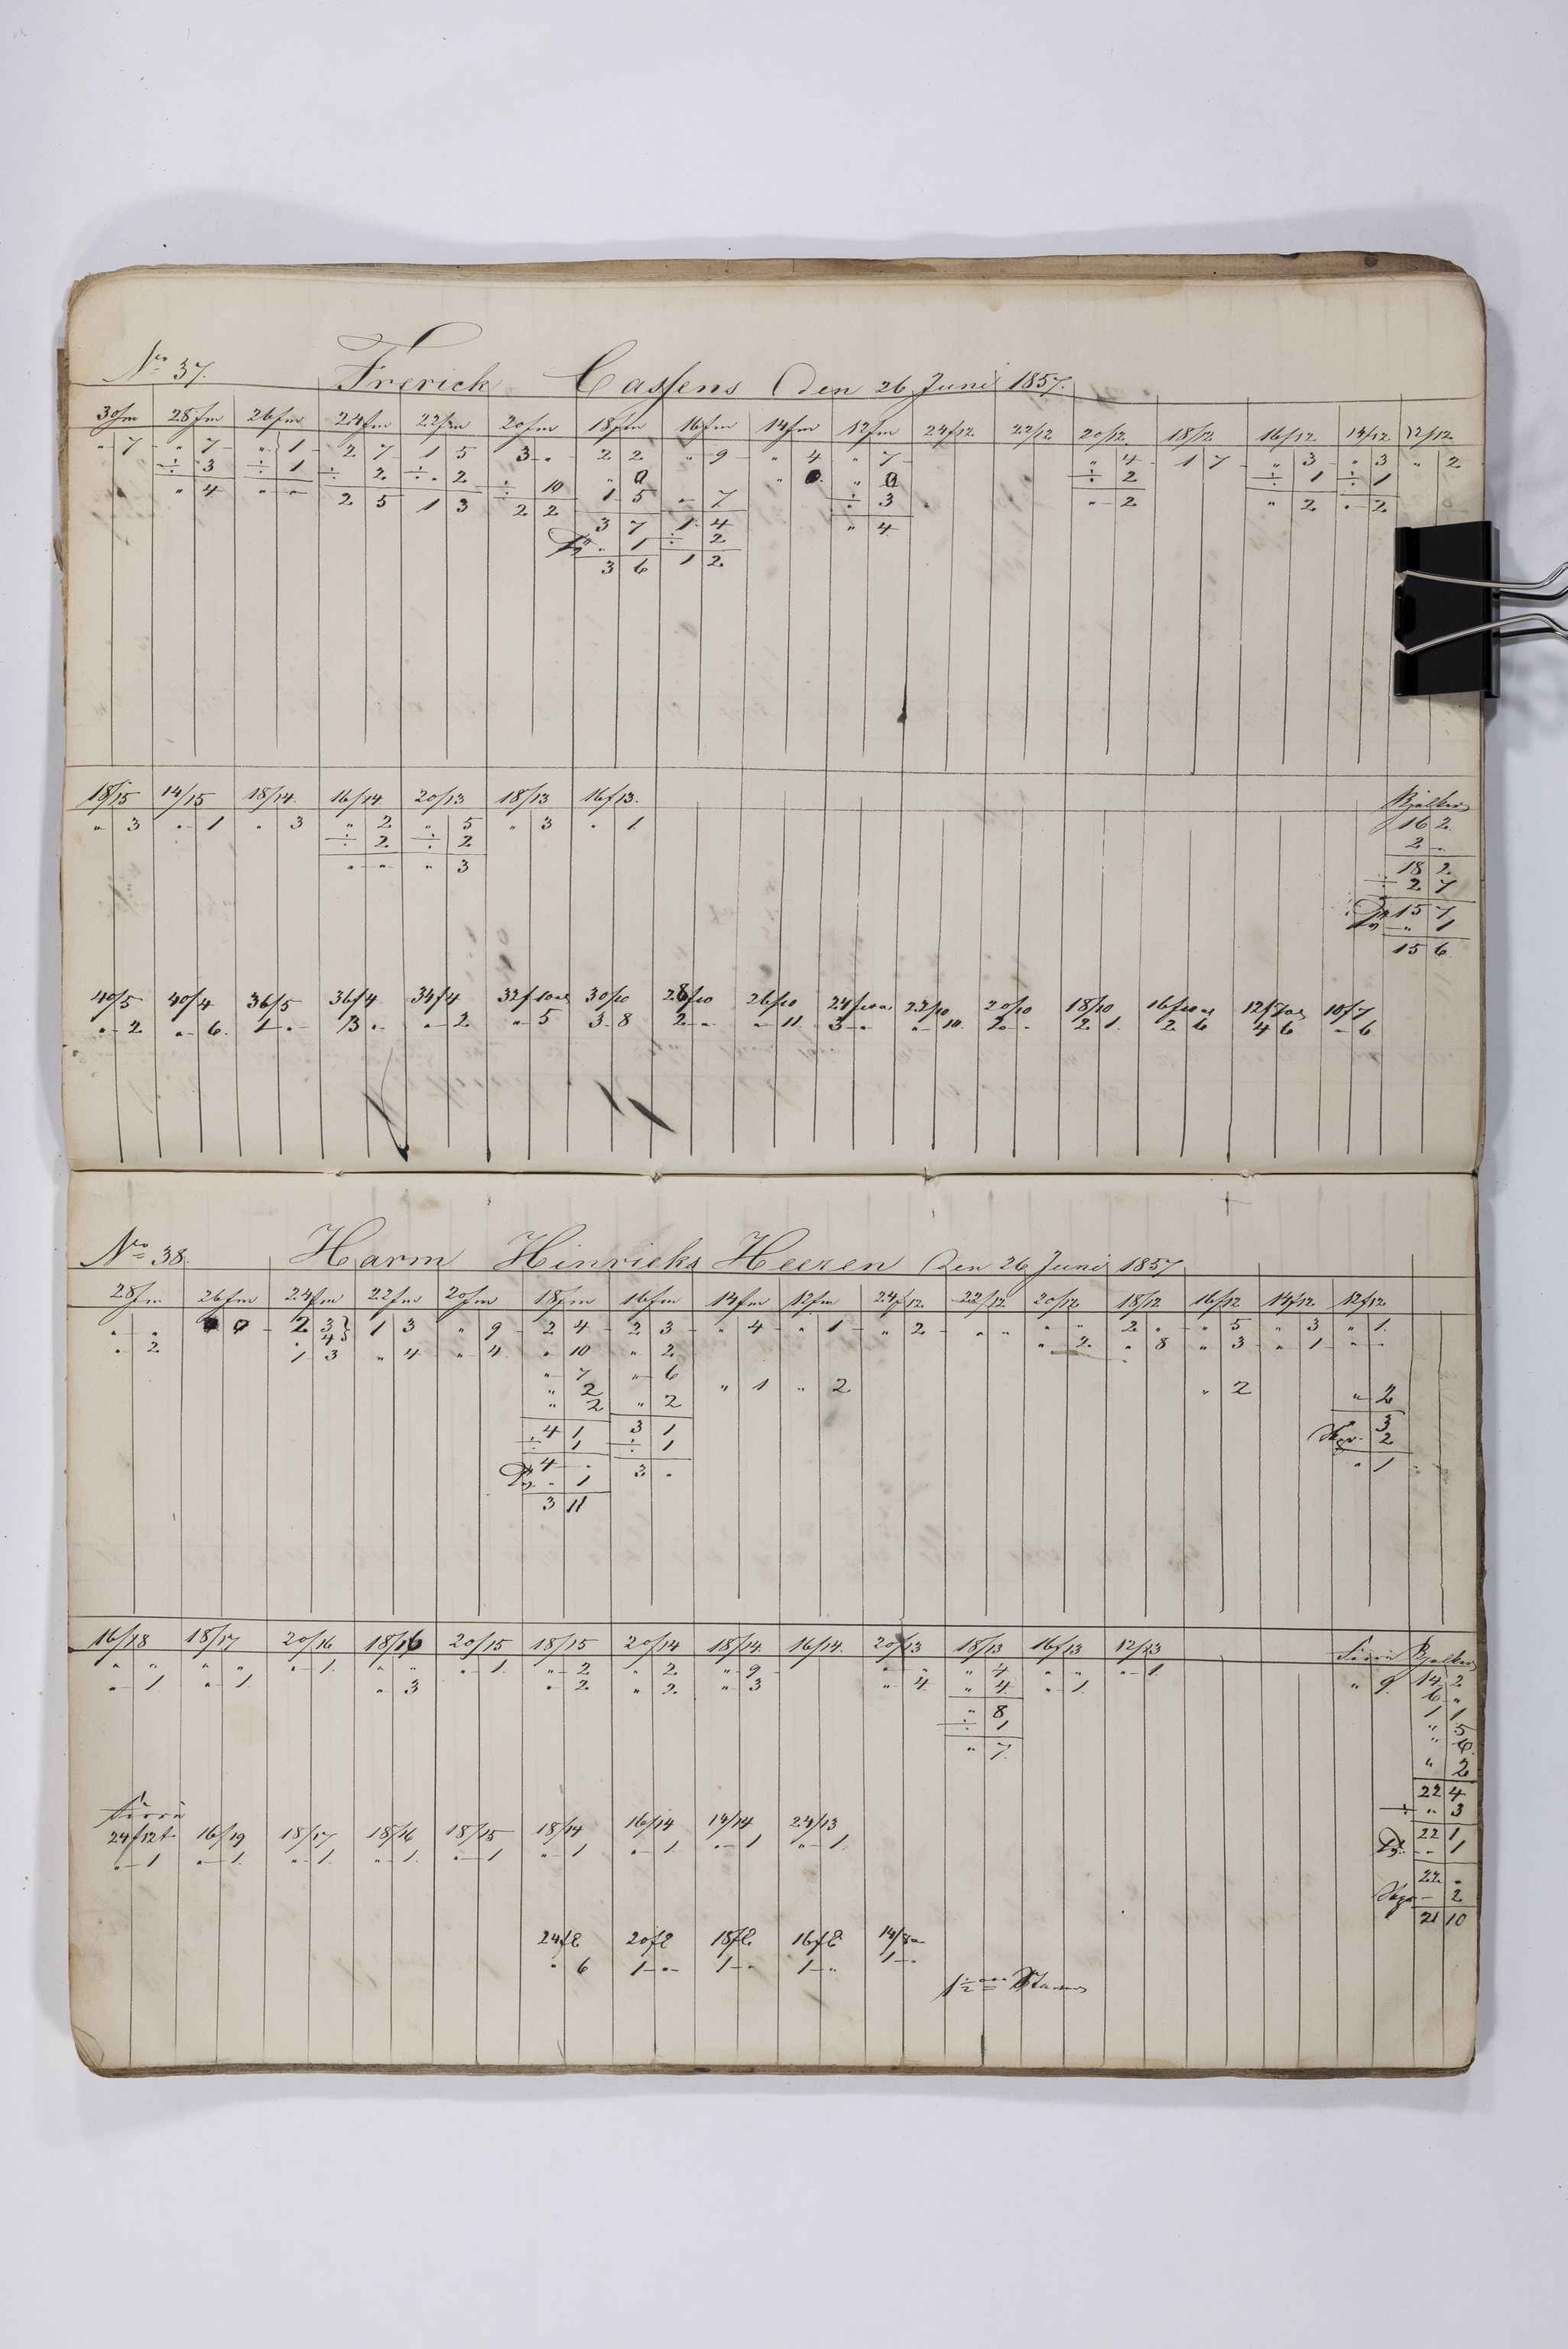 No 37. Frerick Cassens Den 26 Juni 1857.
30/m 28/m 26fm 24fm 22/m 20fm 18fm 16fm 14fm 12fm 24/12 22/12 20/12 18/12 16/12 14/12 12/12
" 7 " 7 " 1 2 7 1 5 3 " 2 2 " 9 " 4 " 7 " 4 1 7 " 3 " 3 " 2
÷ 3 ÷ 1 ÷ 2 ÷ " 2 ÷ 10 " 0 " 0 ÷ 2 ÷ 1 ÷ 1
" 4 " " 2 5 1 3 2 2 1 5 " 7 ÷ 3 " 2 " 2 " 2
3 7 1 4 " 4
" 1 ÷ 2
3 6 1 2
18/15 14/15 18/14 16/14 20/13 18/13 16/13 Bjelker
" 3 " 1 " 3 " 2 " 5 " 3 " 1 16 2
÷ 2 ÷ 2 2 "
" " " 3 18 2
÷ 2 7
15 7
" 1
15 6
40/5 40/4 36/5 36/4 34/4 32/10 30/10 28/10 26/10 24/10 22/10 20/10 18/10 16/10 12/7 10/7
" 2 " 6 1 " 3 " " 2 " 5 3 8 2 " " 11 3 " " 10 2 " 2 1 2 6 4 6 " 6
No 38. Harm Hinricks Heeren Den 26 Juni 1857
28fm 26fm 24fm 22fm 20fm 18fm 16fm 14fm 12fm 24/12 22/12 20/12 18/12 16/12 14/12 12/12
" " 0 2 3 1 3 " 9 2 4 2 3 " 4 " 1 " 2 " " " " 2 " " 5 " 3 " 1
" 2 " 4
1 3 " 4 " 4 " 10 " 2 " 2 " 8 " 3 " 1 " "
" 7 " 6
" 2 " 1 " 2 " 2 " 2
" 2 " 2
4 1 3 1 3
÷ 1 ÷ 1 2
4 " 3 " " 1
" 1
3 11
16/18 18/17 20/16 18/16 20/15 18/15 20/14 18/14 16/14 20/13 18/13 16/13 12/13 Bjelker
" " " " " 1 " " " 1 " 2 " 2 " 9 " " " 4 " " " 1 " 9 14 2
" 1 " 1 " 3 " 2 " 2 " 3 " 4 " 4 " 1 6 "
" 8 1 1
÷ 1 " 5
" 7 " 6
" 2
22 4
÷ " 3
22 1
" 1
22 "
" 2
21 10
24/12 16/19 18/17 18/16 18/15 18/14 16/14 14/14 24/13
" 1 " 1 " 1 " 1 " 1 " 1 " 1 " 1 " 1
24/8 20/8 18/8 16/8 14/8
" 6 1 " 1 " 1 " 1 "